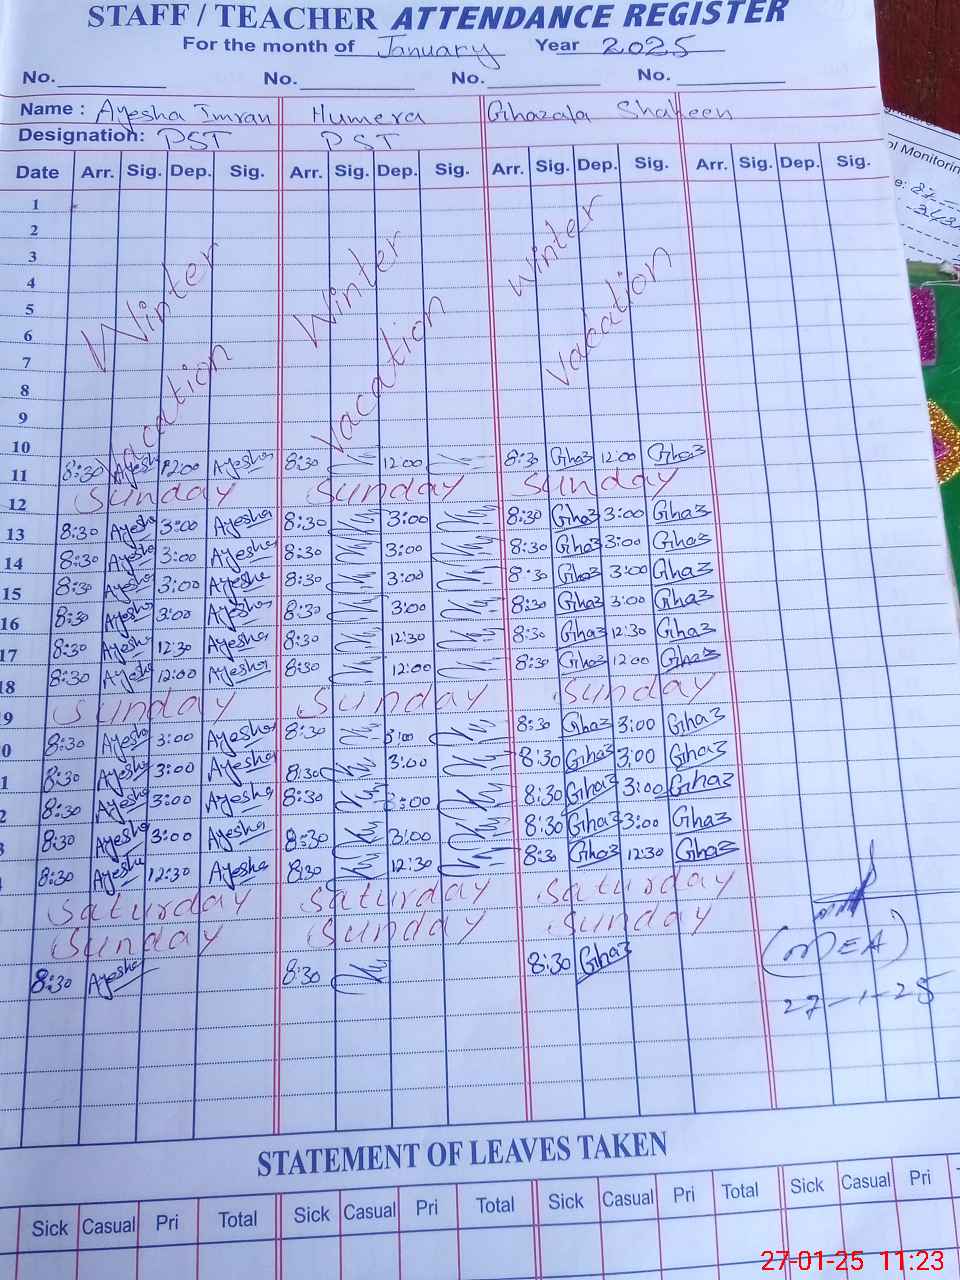 STAFF / TEACHER ATTENDANCE REGISTER
For the month of January Year 2025
No. No. No. No.
Name : Ayesha Imran Humera Ghazala Shaheen
Designation: PST PST
Date Arr. Sig. Dep. Sig. Arr. Sig. Dep. Sig. Arr. Sig. Dep. Sig. Arr. Sig. Dep. Sig.
1
2
3
4
5
6
7
8
9
10
Winter Vacation Winter Vacation Winter Vacation
11 8:30 Ayesha 12:00 Ayesha 8:30 12:00 8:30 Ghaz 12:00 Ghaz
12 Sunday Sunday Sunday
13 8:30 Ayesha 3:00 Ayesha 8:30 3:00 8:30 Ghaz 3:00 Ghaz
14 8:30 Ayesha 3:00 Ayesha 8:30 3:00 8:30 Ghaz 3:00 Ghaz
15 8:30 Ayesha 3:00 Ayesha 8:30 3:00 8:30 Ghaz 3:00 Ghaz
16 8:30 Ayesha 3:00 Ayesha 8:30 3:00 8:30 Ghaz 3:00 Ghaz
17 8:30 Ayesha 12:30 Ayesha 8:30 12:30 8:30 Ghaz 12:30 Ghaz
18 8:30 Ayesha 12:00 Ayesha 8:30 12:00 8:30 Ghaz 12:00 Ghaz
9 Sunday Sunday Sunday
0 8:30 Ayesha 3:00 Ayesha 8:30 3:00 8:30 Ghaz 3:00 Ghaz
1 8:30 Ayesha 3:00 Ayesha 8:30 3:00 8:30 Ghaz 3:00 Ghaz
2 8:30 Ayesha 3:00 Ayesha 8:30 3:00 8:30 Ghaz 3:00 Ghaz
3 8:30 Ayesha 3:00 Ayesha 8:30 3:00 8:30 Ghaz 3:00 Ghaz
8:30 Ayesha 12:30 Ayesha 8:30 12:30 8:30 Ghaz 12:30 Ghaz
Saturday Saturday Saturday
Sunday Sunday Sunday
8:30 Ayesha 8:30 8:30 Ghaz
(MEA)
27-1-25
STATEMENT OF LEAVES TAKEN
Sick Casual Pri Total Sick Casual Pri Total Sick Casual Pri Total Sick Casual Pri
Monitoring
27-01-25 11:23